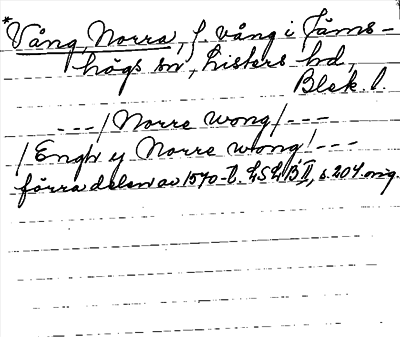 *Vång, Norra, f. vång i Jäms-
högs sn, Listers hd,
Blek. l.
---/ Norre wong /---
/ Engh y Norre wong / ---
förra delen av 1570-t. LSL B II, s. 204. orig.